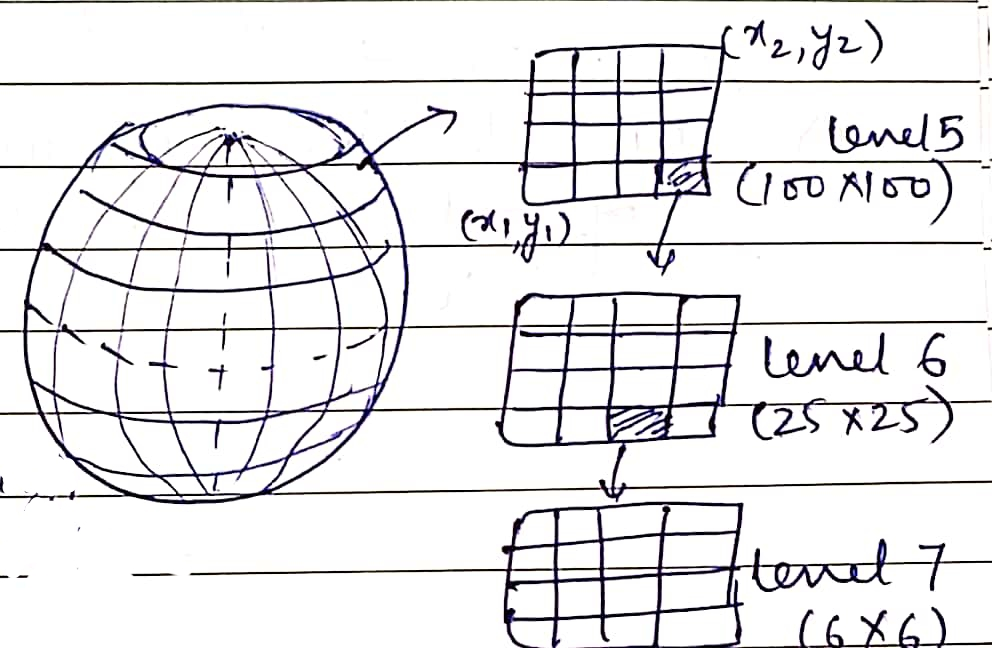 (x2, y2)
Level 5
(100 X 100)
(x1, y1)
Level 6
(25 X 25)
Level 7
(6 X 6)